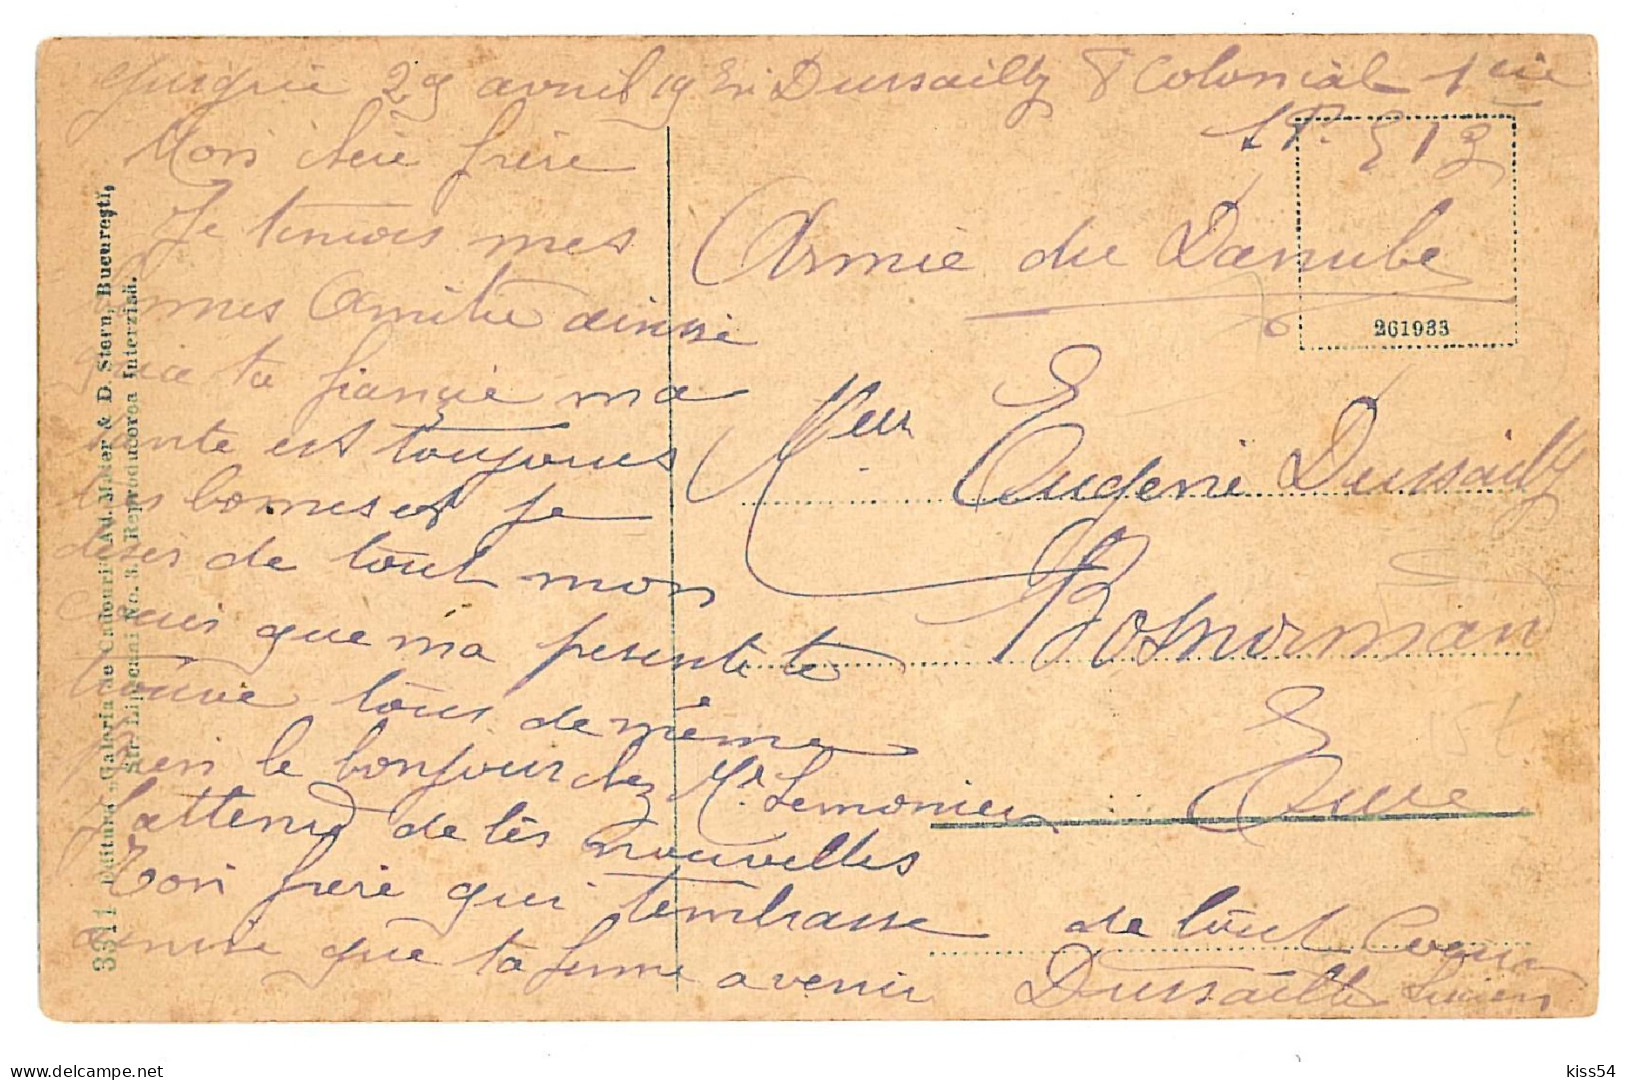 29 avril 19 Dussailly 8 Colonial 1
SP. 513
Mon cheie frere
Je tenvois mes
bonnes Amitie ainssi
que ta fiancie ma
sante est toujours
tes bonnes et je
desir de tout mon
que ma presente te
trouve tous de mème
bien le bonjour chez Mr. Lemonier
J'attend de tes nouvelles
Ton frere qui tembrasse
de tout Coeur
ainsie que ta feme a venir
Dussailly Lucien
Armie du Danube
Eugene Dussailly
Bosnorman
Eure
261933
3311 Editura Galeria de Cadouri Ad. Maier & D. Stern, Bucureşti,
Str. Lipscani No. 3. Reproducerea Interzisă.
delcampe.net
kiss54